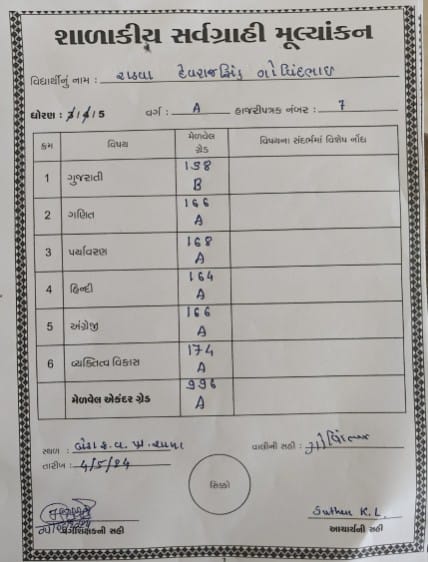 શાળાકીય સર્વગ્રાહી મૂલ્યાંકન
વિદ્યાર્થીનું નામ : રાઠવા દેવરાજસિંહ ગોવિંદભાઇ
ધોરણ : 3/4/5 વર્ગ : A હાજરીપત્રક નંબર : 7
ક્રમ વિષય મેળવેલ ગ્રેડ વિષયના સંદર્ભમાં વિશેષ નોંધ
1 ગુજરાતી 158 B
2 ગણિત 166 A
3 પર્યાવરણ 168 A
4 હિન્દી 164 A
5 અંગ્રેજી 166 A
6 વ્યક્તિત્વ વિકાસ 174 A
મેળવેલ એકંદર ગ્રેડ 996 A
સ્થળ : પ્રા. શાળા વાલીની સહી :
તારીખ : 4/5/24
સિક્કો
Suthar K.L.
વર્ગશિક્ષકની સહી આચાર્યની સહી